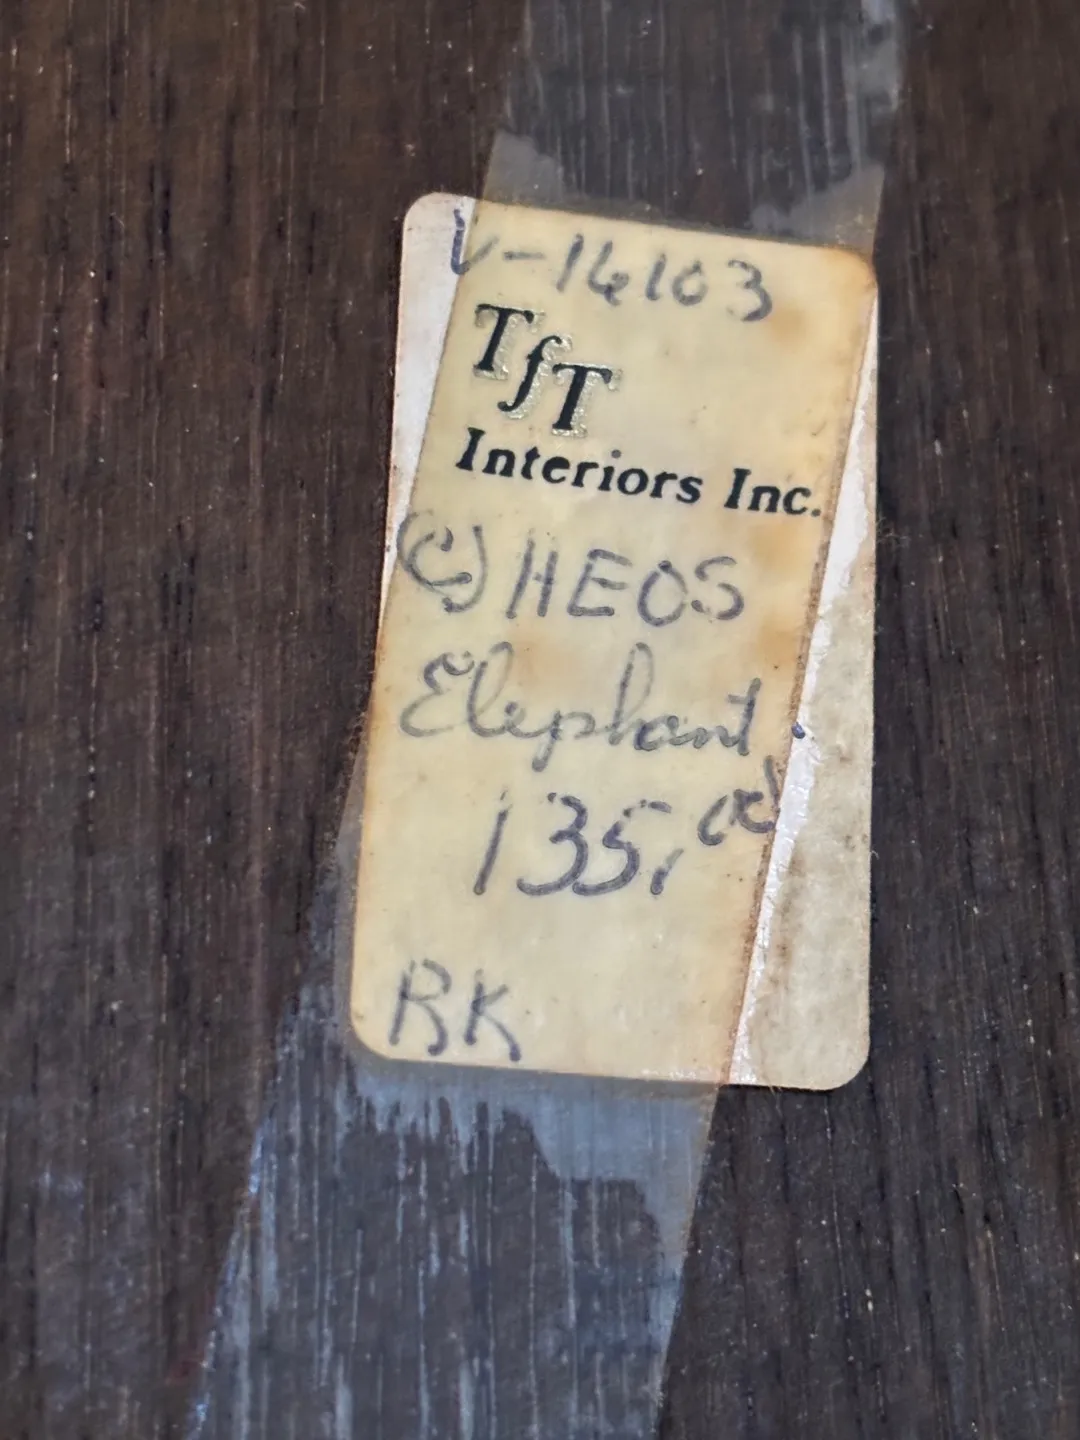 V-16103
TfT
Interiors Inc.
(C) HEOS
Elephant
135.00
RK